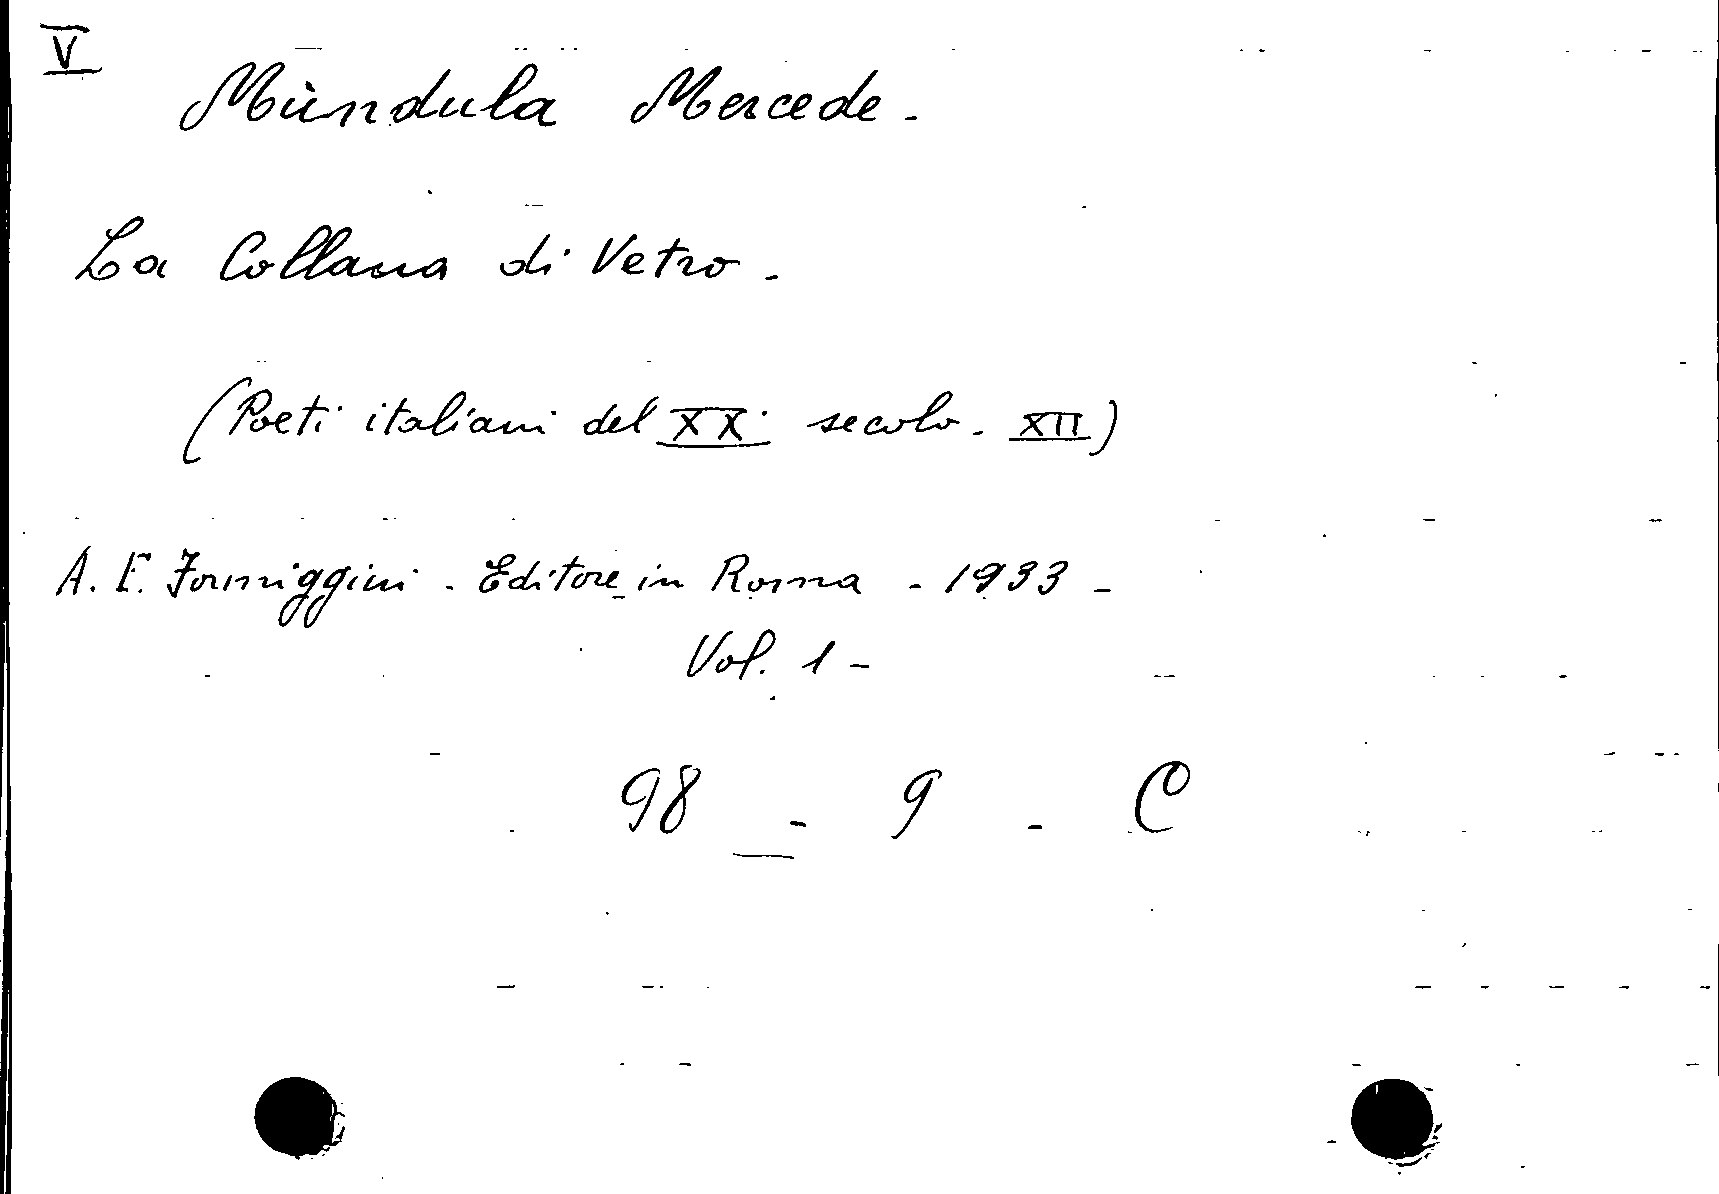 V
Mùndula Mercede.
La Collana di Vetro.
(Poeti italiani del XX. secolo. XII)
A. F. Formiggini. Editore in Roma - 1933 -
Vol. 1 -
98 - 9 - C